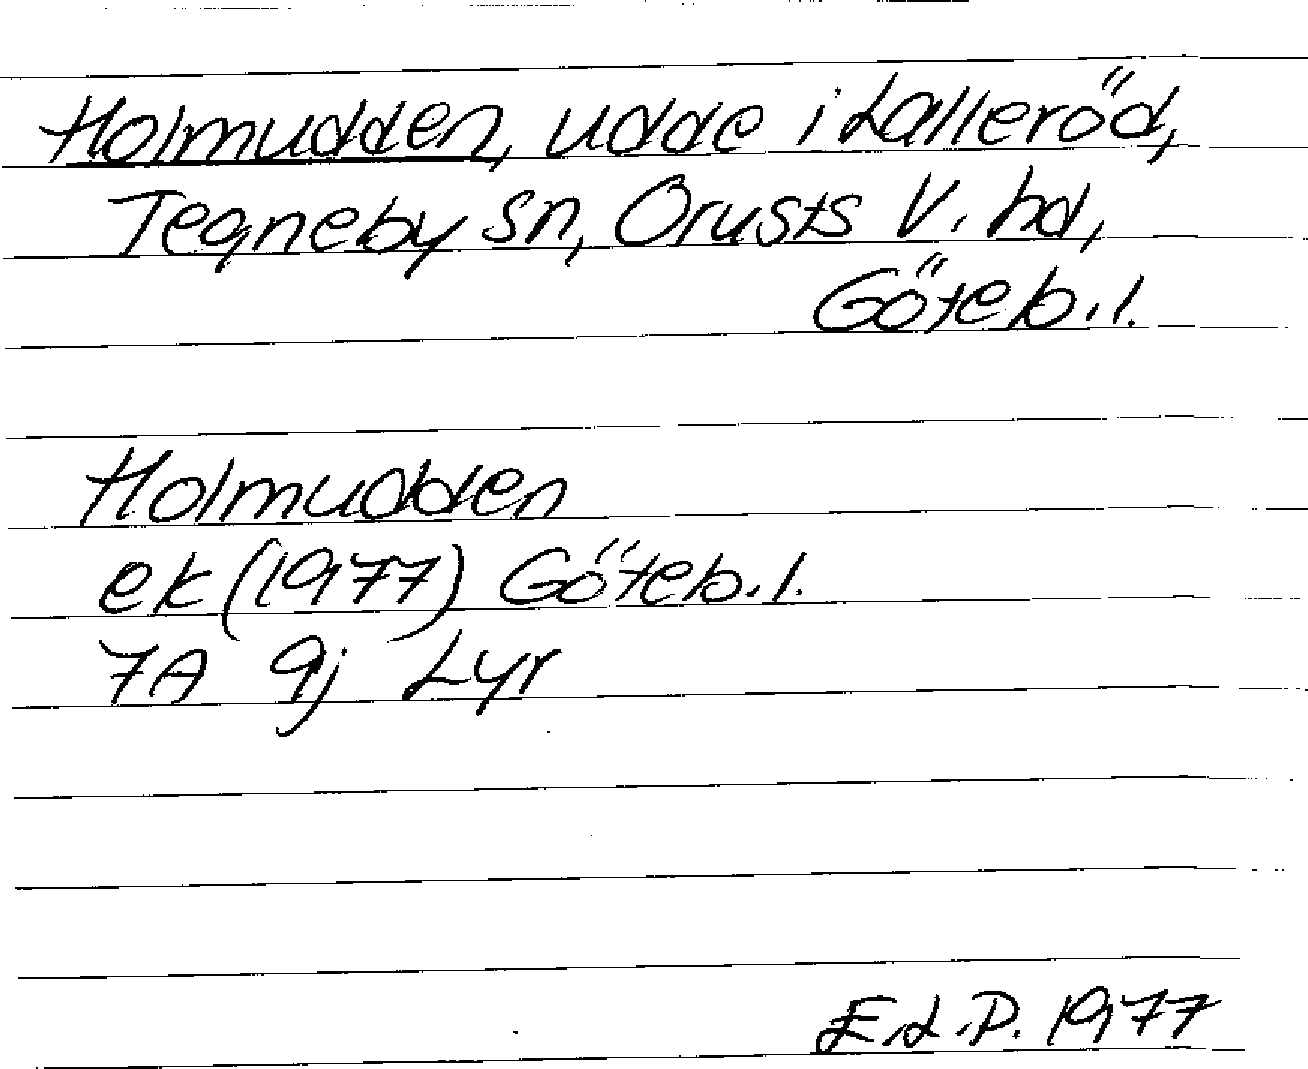 Holmudden, udde i Lalleröd,
Tegneby sn, Orusts V. hd,
Göteb.l.
Holmudden
ek (1977) Göteb.l.
7A 9j Lyr
E.L.P. 1977